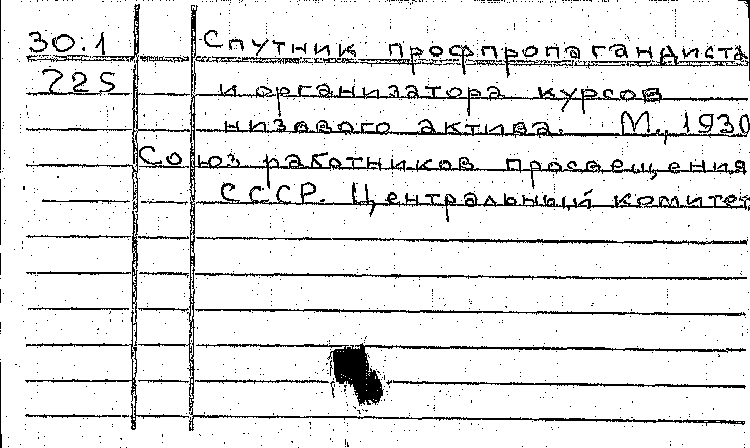 30.1 Спутник профпропагандиста
225 и организатора курсов
низового актива. М., 1930
Союз работников просвещения
СССР. Центральный комитет